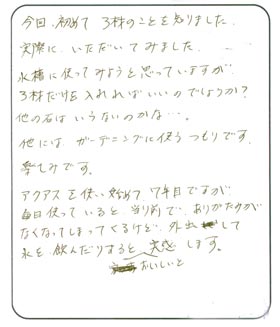 今回、初めて3株のことを知りました。
実際に、いただいてみました。
水槽に使ってみようと思っていますが
3株だけを入れればいいのでしょうか?
他の石はいらないのかな…。
他には、ガーデニングに使うつもりです。
楽しみです。
アクアスを使い始めて7年目ですが
毎日使っていると、当り前で、ありがたみが
なくなってしまってくるけど、外出して
水を飲んだりすると実感します。
おいしいと